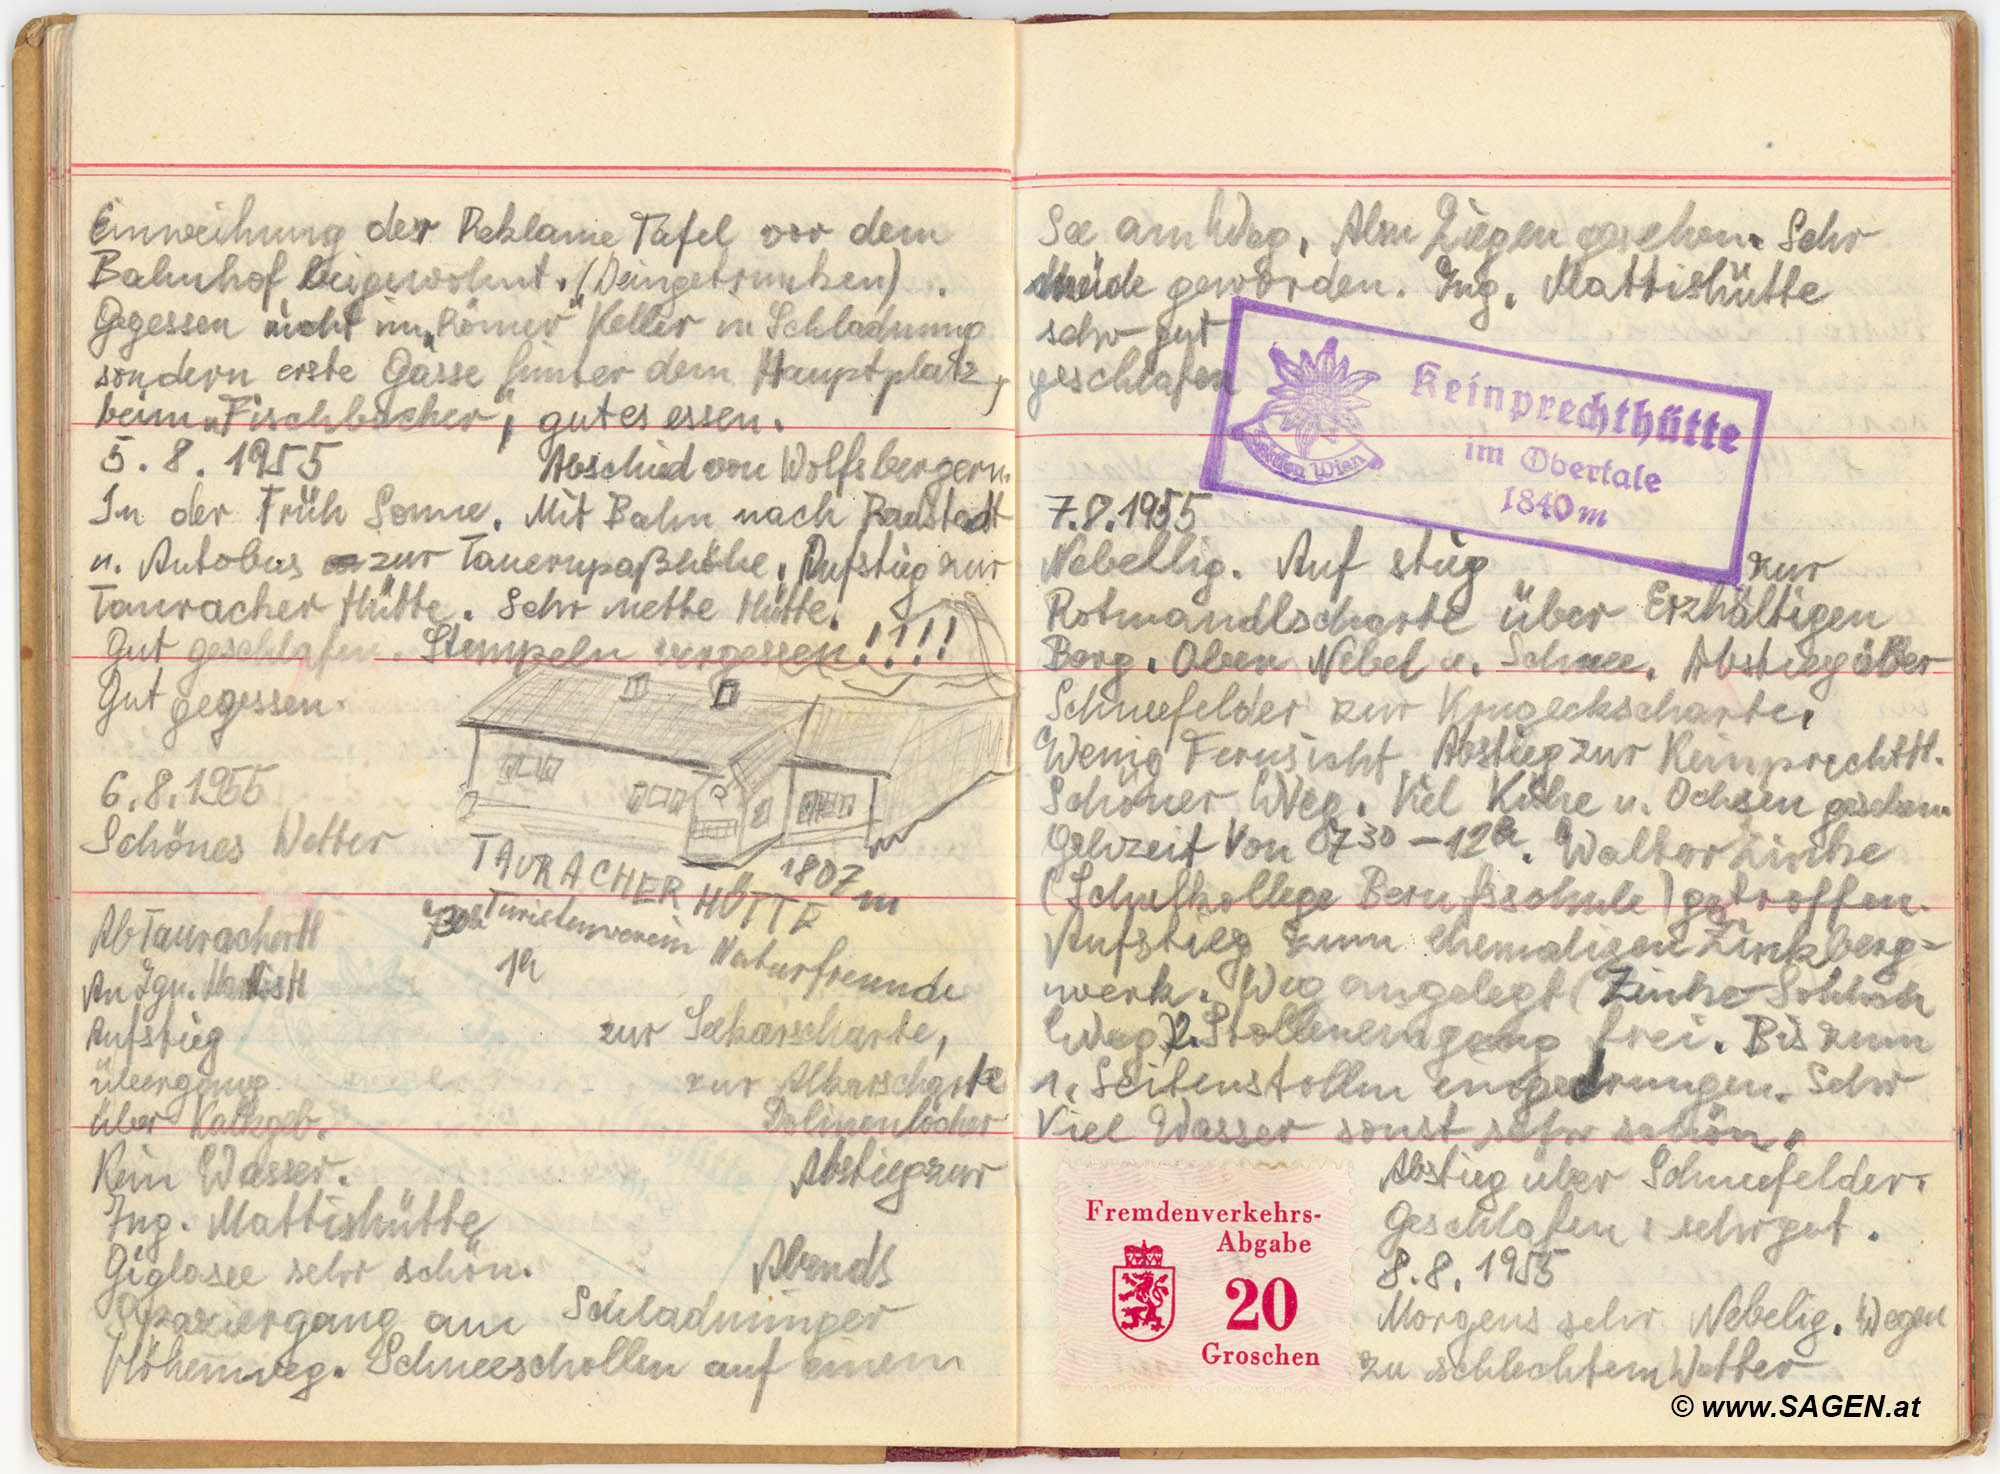 Einweihung der Reklame Tafel vor dem
Bahnhof beigewohnt. (Weingetrunken).
Gegessen nicht im „Römer" Keller in Schladming
sondern erste Gasse hinter dem Hauptplatz,
beim „Fischbacher", gutes essen.
5.8.1955 Abschied von Wolfsbergern.
In der Früh Sonne. Mit Bahn nach Radstadt
u. Autobus zur Tauernpaßhöhe. Aufstieg zur
Tauracher Hütte. Sehr nette Hütte.
Gut geschlafen. Stempeln vergessen!!!!
Gut gegessen.
6.8.1955
Schönes Wetter
TAURACHER HÜTTE 1807 m
Turistenverein Naturfreunde
Ab TauracherH
An Ign. MattisH 1h
Aufstieg zur Seekarscharte,
Übergang zur Alkarscharte
über Kalkgeb. Dolinenlöcher
Kein Wasser. Abstieg zur
Ing. Mattishütte
Giglasee sehr schön. Abends
Spaziergang am Schladminger
Höhenweg. Schneeschollen auf einem
See am Weg. Alm Ziegen gesehen. Sehr
müde geworden. Ing. Mattishütte
sehr gut
geschlafen
Keinprechthütte
im Obertale
1840 m
Wien
7.8.1955
Nebellig. Auf stieg zur
Rotmandlscharte über Erzhältigen
Berg. Oben Nebel u. Schnee. Abstieg über
Schneefelder zur Krugeckscharte.
Wenig Fernsicht. Abstieg zur KeinprechtH.
Schöner Weg. Viel Kühe u. Ochsen gesehen.
Gehzeit von 730 – 12h. Walter Zinke
(Schulkollege Berufsschule) getroffen.
Aufstieg zum ehemaligen Zinkberg=
werk. Weg angelegt (Zinke
Weg). Stolleneingang frei. Bis zum
1. Seitenstollen eingedrungen. Sehr
Viel Wasser sonst sehr schön.
Abstieg über Schneefelder.
Geschlafen: sehr gut.
8.8.1955
Morgens sehr Nebelig. Wegen
zu schlechtem Wetter
Fremdenverkehrs-
Abgabe
20
Groschen
© www.SAGEN.at